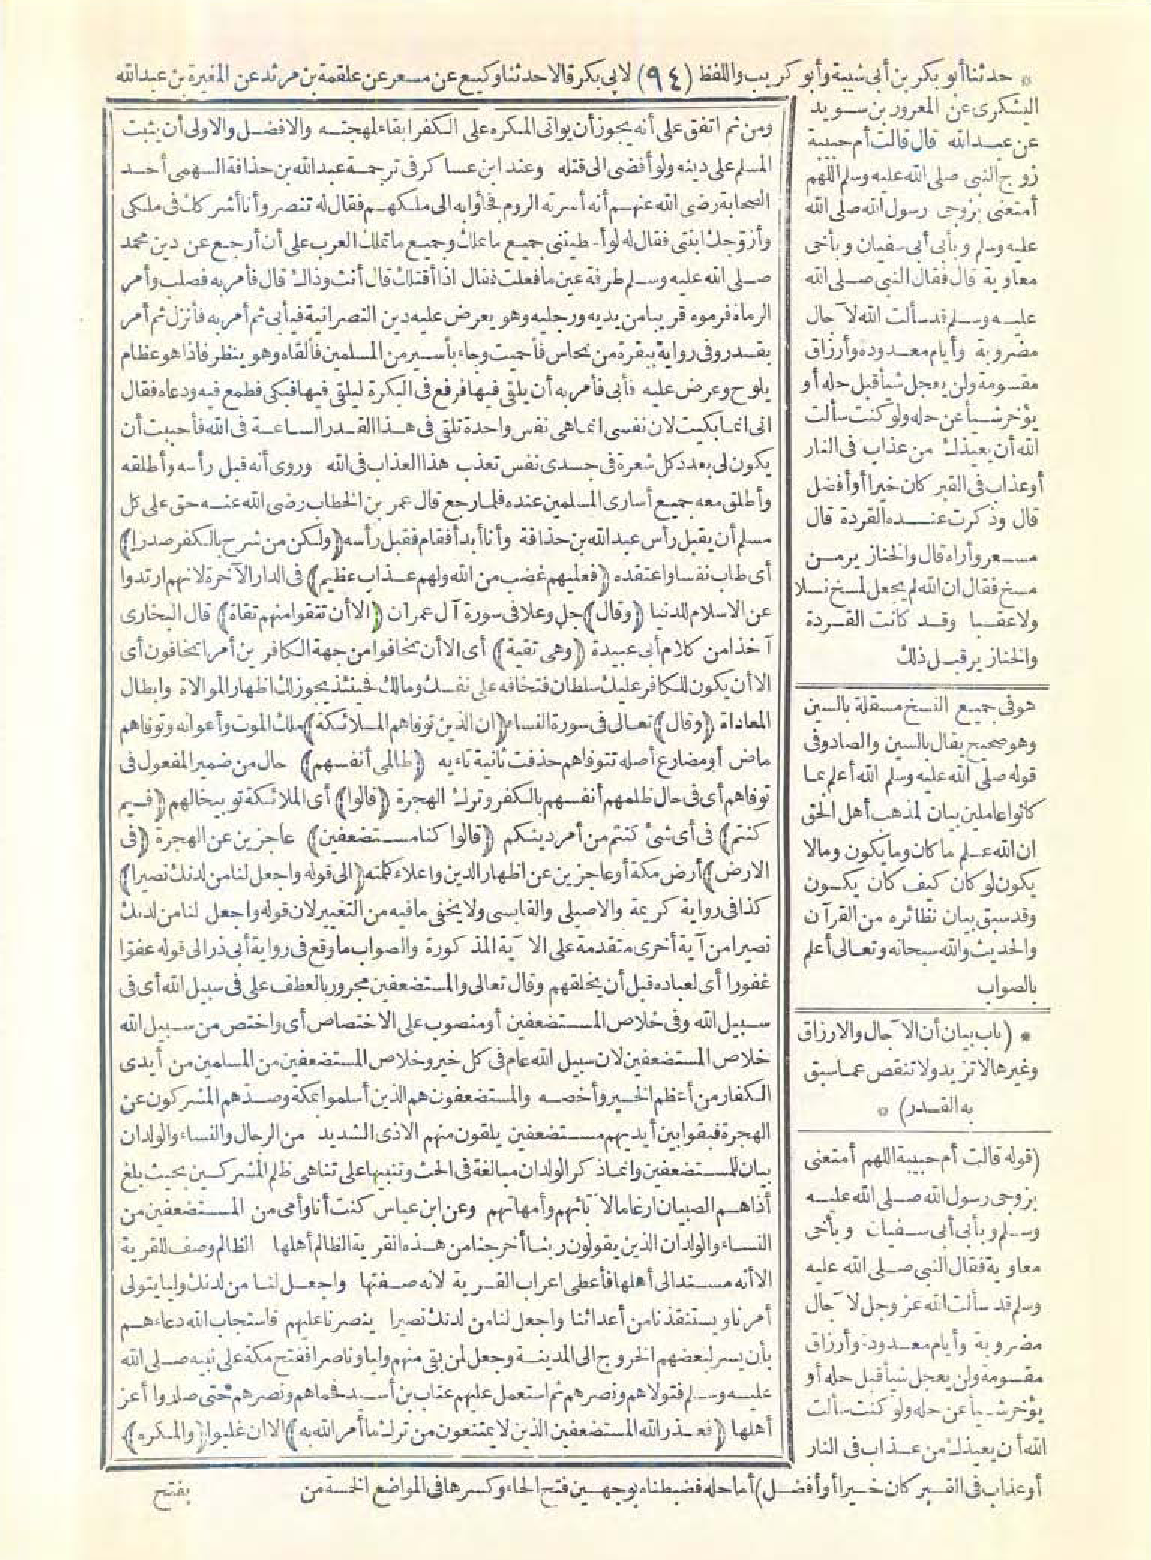 * حدثنا أبو بكر بن أبى شيبة وأبو كريب واللفظ (٩٤) لابى بكر قالا حدثنا وكيع عن مسعر عن علقمة بن مرثد عن المغيرة بن عبدالله
اليشكرى عن المعرور بن سويد
عن عبدالله قال قالت أم حبيبة
زوج النبى صلى الله عليه وسلم اللهم
أمتعنى بزوجى رسول الله صلى الله
عليه وسلم وبأبى أبى سفيان وبأخى
معاوية قال فقال النبى صلى الله
عليه وسلم قد سألت الله لآجال
مضروبة وأيام معدودة وأرزاق
مقسومة ولن يعجل شيأ قبل حله أو
يؤخر شيأ عن حله ولو كنت سألت
الله أن يعيذك من عذاب فى النار
أو عذاب فى القبر كان خيرا أو أفضل
قال وذكرت عنده القردة قال
مسعر وأراه قال والخنازير من
مسخ فقال ان الله لم يجعل لمسخ نسلا
ولا عقبا وقد كانت القردة
والخنازير قبل ذلك
هو فى جميع النسخ مسقلة بالسين
وهو صحيح يقال بالسين والصاد وفى
قوله صلى الله عليه وسلم الله أعلم بما
كانوا عاملين بيان لمذهب أهل الحق
ان الله علم ما كان وما يكون وما لا
يكون لو كان كيف كان يكون
وقد سبق بيان نظائره من القرآن
والحديث والله سبحانه وتعالى أعلم
بالصواب
* (باب بيان أن الآجال والارزاق
وغيرها لا تزيد ولا تنقص عما سبق
به القدر) *
(قوله قالت أم حبيبة اللهم أمتعنى
بزوجى رسول الله صلى الله عليه
وسلم وبأبى أبى سفيان وبأخى
معاوية فقال النبى صلى الله عليه
وسلم قد سألت الله عز وجل لآجال
مضروبة وأيام معدودة وأرزاق
مقسومة ولن يعجل شيأ قبل حله أو
يؤخر شيأ عن حله ولو كنت سألت
الله أن يعيذك من عذاب فى النار
أو عذاب فى القبر كان خيرا أو أفضل) أما حله فضبطناه بوجهين فتح الحاء وكسرها فى المواضع الخمسة من
بفتح
ومن ثم اتفق على أنه يجوز أن يواتى المكره على الكفر ابقاء لمهجته والافضل والاولى أن يثبت
المسلم على دينه ولو أفضى الى قتله وعند ابن عساكر فى ترجمة عبدالله بن حذافة السهمى أحد
الصحابة رضى الله عنهم أنه أسرته الروم فجاؤا به الى ملكهم فقال له تنصر وأنا أشركك فى ملكى
وأزوجك ابنتى فقال له لو أعطيتنى جميع ما تملك وجميع ما تملك العرب على أن أرجع عن دين محمد
صلى الله عليه وسلم طرفة عين ما فعلت فقال اذا أقتلك قال أنت وذاك قال فأمر به فصلب وأمر
الرماة فرموه قريبا من يديه ورجليه وهو يعرض عليه دين النصرانية فيأبى ثم أمر به فأنزل ثم أمر
بقدر وفى رواية ببقرة من نحاس فأحميت وجاء بأسير من المسلمين فألقاه وهو ينظر فاذا هو عظام
يلوح وعرض عليه فأبى فأمر به أن يلقى فيها فرفع فى البكرة ليلقى فيها فبكى فطمع فيه ودعاه فقال
انى انما بكيت لان نفسى انما هى نفس واحدة تلقى فى هذا القدر الساعة فى الله فأحببت أن
يكون لى بعدد كل شعرة فى جسدى نفس تعذب هذا العذاب فى الله وروى أنه قبل رأسه وأطلقه
وأطلق معه جميع أسارى المسلمين عنده فلما رجع قال عمر بن الخطاب رضى الله عنه حق على كل
مسلم أن يقبل رأس عبدالله بن حذافة وأنا أبدأ فقام فقبل رأسه (ولكن من شرح بالكفر صدرا)
أى طاب نفسا واعتقده (فعليهم غضب من الله ولهم عذاب عظيم) فى الدار الآخرة لانهم ارتدوا
عن الاسلام للدنيا (وقال) جل وعلا فى سورة آل عمران (الا أن تتقوا منهم تقاة) قال البخارى
آخذا من كلام أبى عبيدة (وهى تقية) أى الا أن تخافوا من جهة الكافرين أمرا تخافون أى
الا أن يكون للكافر عليك سلطان فتخافه على نفسك ومالك فحينئذ يجوز لك اظهار الموالاة وابطال
المعاداة (وقال) تعالى فى سورة النساء (ان الذين توفاهم الملائكة) ملك الموت وأعوانه وتوفاهم
ماض أو مضارع أصله تتوفاهم حذفت ثانية تاءيه (ظالمى أنفسهم) حال من ضمير المفعول فى
توفاهم أى فى حال ظلمهم أنفسهم بالكفر وترك الهجرة (قالوا) أى الملائكة توبيخا لهم (فيم
كنتم) فى أى شئ كنتم من أمر دينكم (قالوا كنا مستضعفين) عاجزين عن الهجرة (فى
الارض) أرض مكة أو عاجزين عن اظهار الدين واعلاء كلمته (الى قوله واجعل لنا من لدنك نصيرا)
كذا فى رواية كريمة والاصيلى والقابسى ولا يخفى ما فيه من التغيير لان قوله واجعل لنا من لدنك
نصيرا من آية أخرى متقدمة على الآية المذكورة والصواب ما وقع فى رواية أبى ذر الى قوله عفوا
غفورا أى لعباده قبل أن يخلقهم وقال تعالى والمستضعفين مجرور بالعطف على فى سبيل الله أى فى
سبيل الله وفى خلاص المستضعفين أو منصوب على الاختصاص أى واختص من سبيل الله
خلاص المستضعفين لان سبيل الله عام فى كل خير وخلاص المستضعفين من المسلمين من أيدى
الكفار من أعظم الخير وأخصه والمستضعفون هم الذين أسلموا بمكة وصدهم المشركون عن
الهجرة فبقوا بين أيديهم مستضعفين يلقون منهم الاذى الشديد من الرجال والنساء والولدان
بيان للمستضعفين وانما ذكر الولدان مبالغة فى الحث وتنبيها على تناهى ظلم المشركين بحيث بلغ
أذاهم الصبيان ارغاما لآبائهم وأمهاتهم وعن ابن عباس كنت أنا وأمى من المستضعفين من
النساء والولدان الذين يقولون ربنا أخرجنا من هذه القرية الظالم أهلها الظالم وصف للقرية
الا أنه مسند الى أهلها فأعطى اعراب القرية لانه صفتها واجعل لنا من لدنك وليا يتولى
أمرنا ويستنقذنا من أعدائنا واجعل لنا من لدنك نصيرا ينصرنا عليهم فاستجاب الله دعاءهم
بأن يسر لبعضهم الخروج الى المدينة وجعل لمن بقى منهم وليا وناصرا ففتح مكة على نبيه صلى الله
عليه وسلم فتولاهم ونصرهم ثم استعمل عليهم عتاب بن أسيد فحماهم ونصرهم حتى صاروا أعز
أهلها (فعذر الله المستضعفين الذين لا يمتنعون من ترك ما أمر الله به) الا ان غلبوا (والمكره)